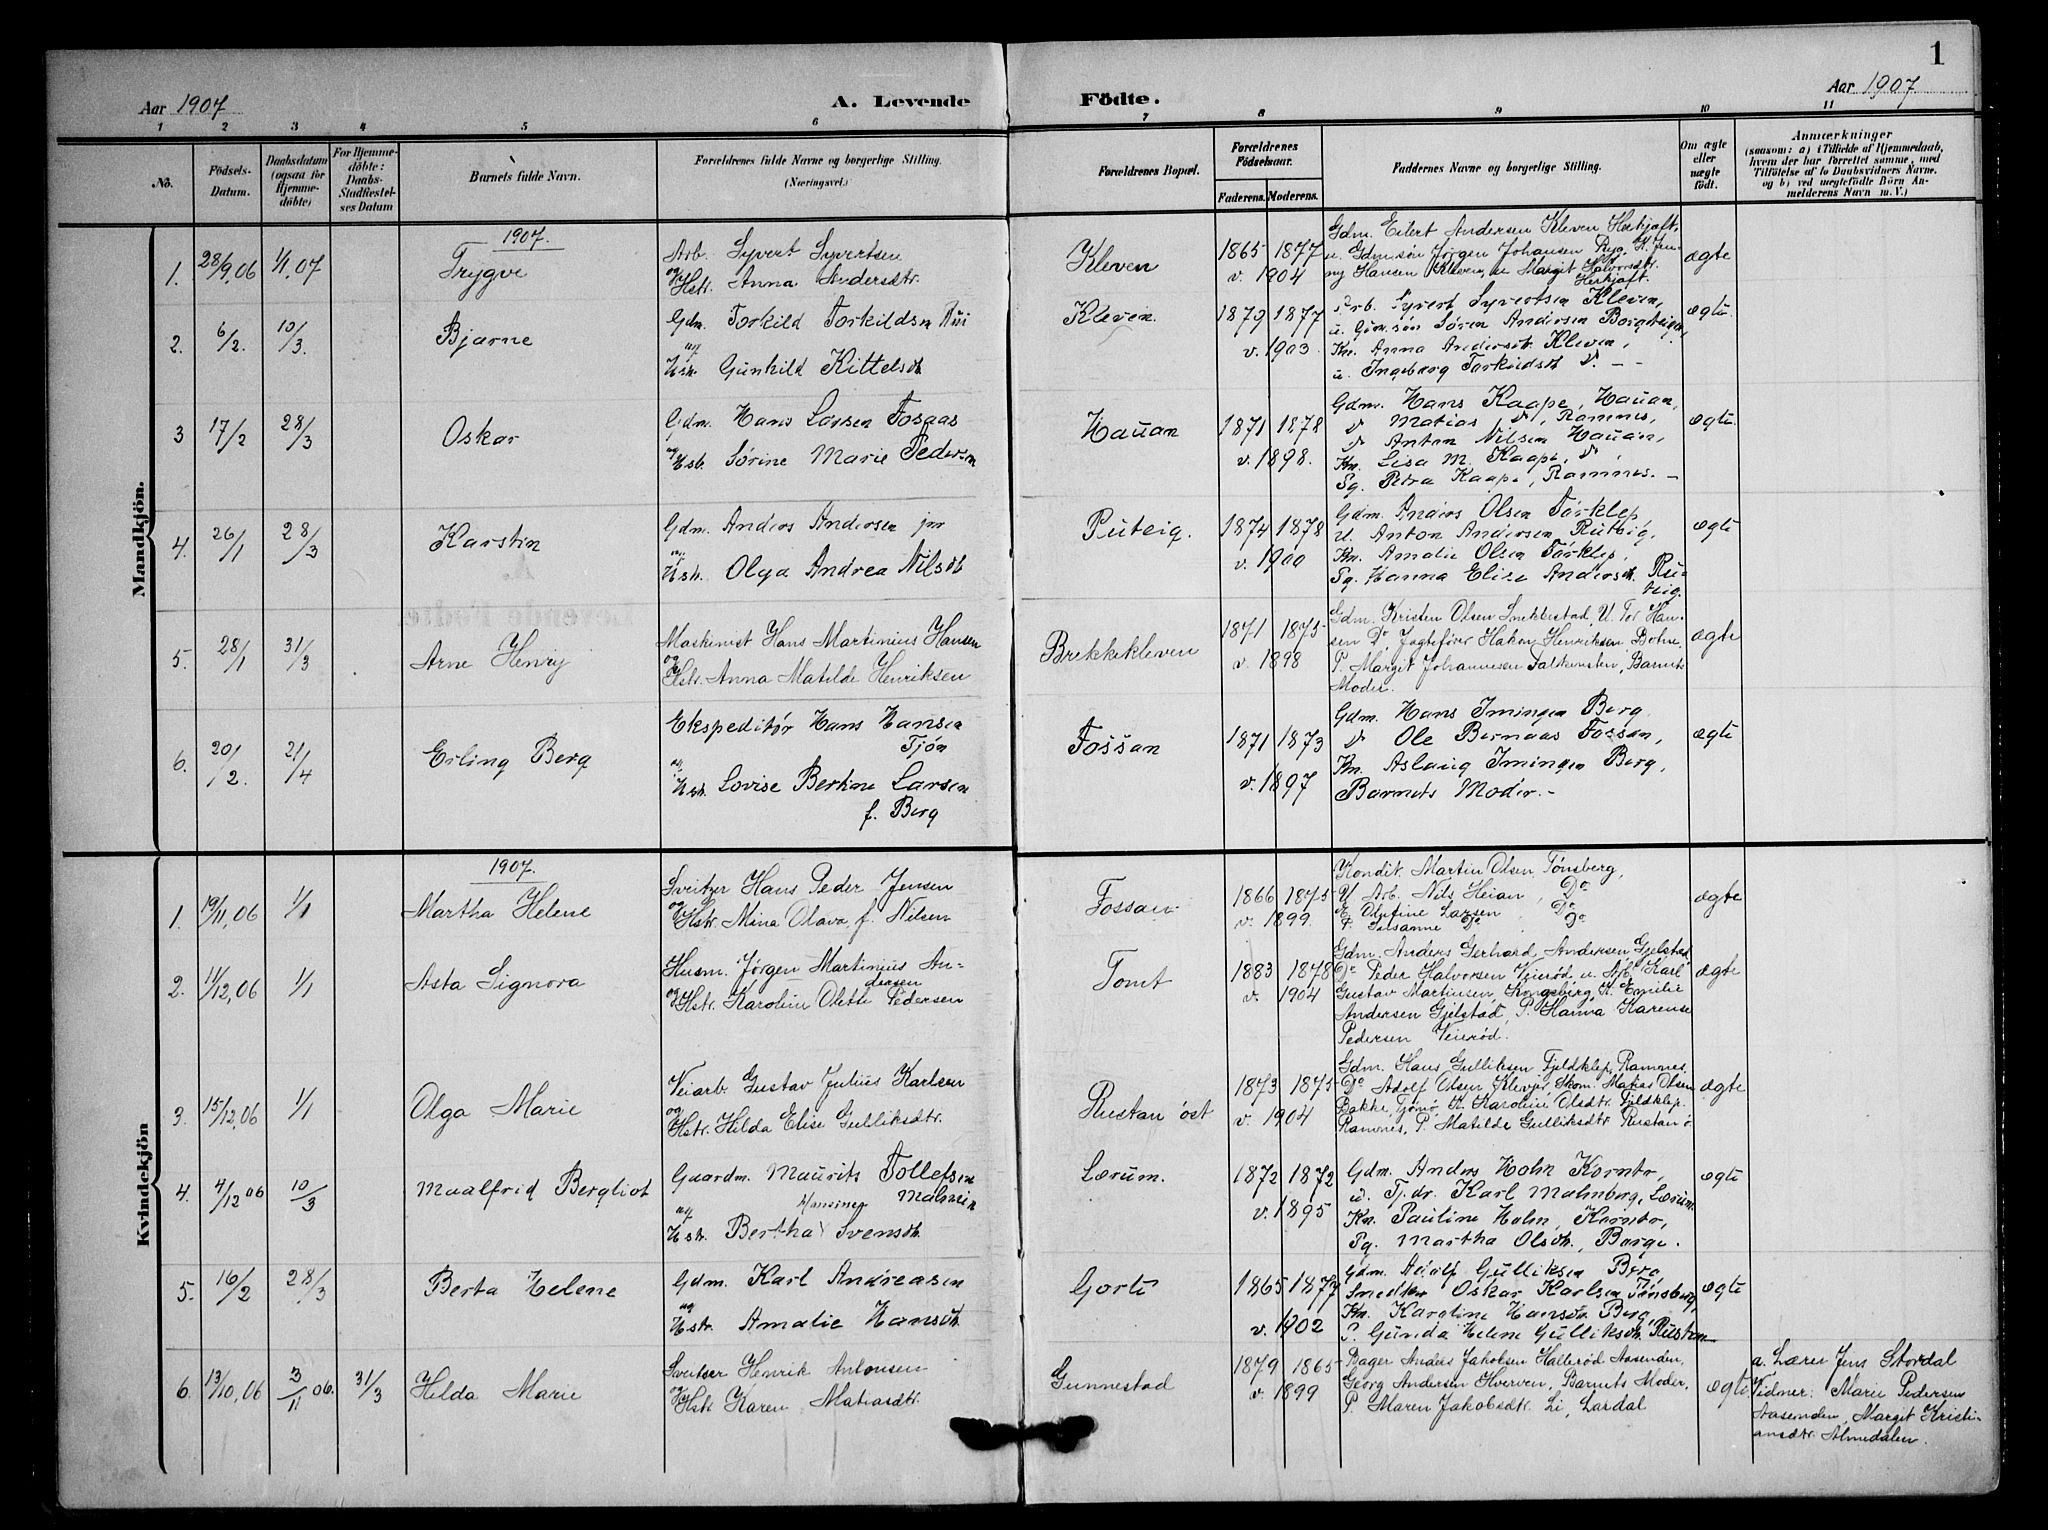 1
Aar 1907
A. Levende Födte.
Aar 1907
1 2 3 4 5 6 7 8 9 10 11
No.
Födsels-Datum.
Daabsdatum (ogsaa for Hjemme-döbte)
For Hjemme-döbte: Daabs-Stadfæstel-ses Datum
Barnets fulde Navn.
Forældrenes fulde Navne og borgerlige Stilling.
(Næringsvei.)
Forældrenes Bopæl.
Forældrenes Födselsaar.
Faderens. Moderens.
Faddernes Navne og borgerlige Stilling.
Om ægte eller uægte födt.
Anmærkninger
(saasom: a) i Tilfælde af Hjemmedaab,
hvem der har forrettet samme, med
Tilföielse af to Daabsvidners Navne.
og b) ved uægtefödte Börn An-
melderens Navn m. V.)
Mandkjön.
1907.
1. 28/9.06 1/1.07 Trygve
Arb. Syvert Syvertsen
og Hstr. Anna Andersdtr.
Kleven
1865 1877
v. 1904
Gdm. Eilert Andersen Kleven Herkjaft,
u. Gdm.søn Jørgen Johansen Rya, K. Jen-
ny Hansen Kleven, u Margit Halvorsdtr.
Herkjaft.
ægte
2. 6/2. 10/3. Bjarne
Gdm. Torkild Torkildsn Rui
og Hst. Gunhild Kittelsdt
Kleven.
1879 1877
v. 1903.
Arb. Syvert Syvertsen Kleven,
u. Gdm.søn Sören Andersen Borgteigen,
Kn. Anna Andersdt. Kleven,
u. Ingeborg Torkildsdt do. - -
ægte
3 17/2 28/3 Oskar
Gdm. Hans Larsen Fosaas
og Hsb. Sörine Marie Pedersen
Hauan
1871 1878
v. 1898.
Gdm. Hans Kaape, Hauan,
do Matias do, Ramnes,
do Anton Nilsen Hauan,
Kn. Lisa M. Kaape, do,
Pg. Petra Kaape, Ramnes. -
ægte.
4. 26/1 28/3 Karstin
Gdm. Anders Andersen jnr
og Hst. Olga Andrea Nilsdt
Ruteig.
1874 1878
v. 1900
Gdm. Anders Olsen Törklep
U. Anton Andersen Ruteig,
Kn. Amalie Olsen Törklep,
Pg. Hanna Elise Andersdt. Ru-
teig.
ægte
5. 28/1 31/3 Arne Henry
Maskinist Hans Martinius Hansen
og Hstr. Anna Matilde Henriksen
Brekkekleven
1871 1875
v. 1898
Gdm. Kristen Olsen Snekkestad, U. Tor Han-
sen Do, Jagtefører Hakon Henriksen Botne,
P. Margit Johannesen Falkensten, Barnets
Moder.
ægte
6. 20/2. 21/4 Erling Berg
Ekspeditör Hans Hansen
Tjön
og Hst. Lovise Bertine Larsen
f. Berg
Fossan
1871 1873
v. 1897
Gdm. Hans Imingen Berg
do Ole Bernaas Fossan,
Kn. Aslaug Imingen Berg,
Barnets Moder. -
ægte
Kvindekjön
1907.
1. 19/11.06 1/1 Martha Helene
Sveitzer Hans Peder Jensen
og Hstr. Mina Olava, f. Nilsen
Fossan
1866 1875
v. 1899.
Kondit. Martin Olsen Tønsberg,
U Arb. Nils Heian, Do
K Olufine Larsen Do
P. Susanne Do Do
ægte
2. 11/12.06 1/1 Asta Signora
Husm. Jørgen Martinius An-
dersen
og Hstr. Karoline Olette Pedersen
Tomt
1883 1878
v. 1904
Gdm. Anders Gerhard Andersen Gjelstad,
Do Peder Halvorsen Veierød, u. Arb. Karl
Gustav Martinsen, Kongsberg, K. Emilie
Andersen Gjelstad, P. Hanna Karense
Pedersen Veierød.
ægte
3. 15/12.06 1/1 Olga Marie
Veiarb. Gustav Julius Karlsen
og Hstr. Hilda Elise Gulliksdtr.
Rustan øst
1873 1875
v. 1904
Gdm. Hans Gulliksen Fjeldklep, Ramnes,
Do Adolf Olsen Klever, Skom. Matias Olsen
Bakke, Tjømø, K. Karoline Olsdtr. Fjeldklep
Ramnes, P. Matilde Gulliksdtr Rustan ø
ægte
4. 4/12 06 10/3 Maalfrid Bergliot
Guardm. Maurits Tollefsen
Malmein
og Hst. Bertha Hansine Svensdt.
Lærum.
1872 1872
v. 1895
Gdm. Anders Holm Korntv,
u. Tj.dr. Karl Malmberg, Lærum
Kn. Pauline Holm, Korntv,
Pg. Martha Olsdt., Borge.
ægte
5. 16/2 28/3 Berta Helene
Gdm. Karl Andreasen
og Hstr. Amalie Hansdt
Gorte
1865 1877
v. 1902
Gdm. Adolf Gulliksen Berg
Smed Oskar Karlsen Tönsberg,
Kn. Karoline Hansdt. Berg,
P. Gunda Helene Gulliksdt. Rustan
ægte
6. 13/10.06 3/11 06. 31/3 Hilda Marie
Sveitser Henrik Antonsen
og Hstr Karen Matiasdtr.
Gunnestad
1879 1865
v. 1899
Bager Anders Jakobsen Hallerød Aasenden,
Georg Andersen Hverven, Barnets Moder,
P. Maren Jakobsdtr. Li, Lardal
ægte
a. Lærer Jens Stordal
Vidner: Marie Pedersen
Aasenden, Margit Kristi-
ansdtr. Almedalen.